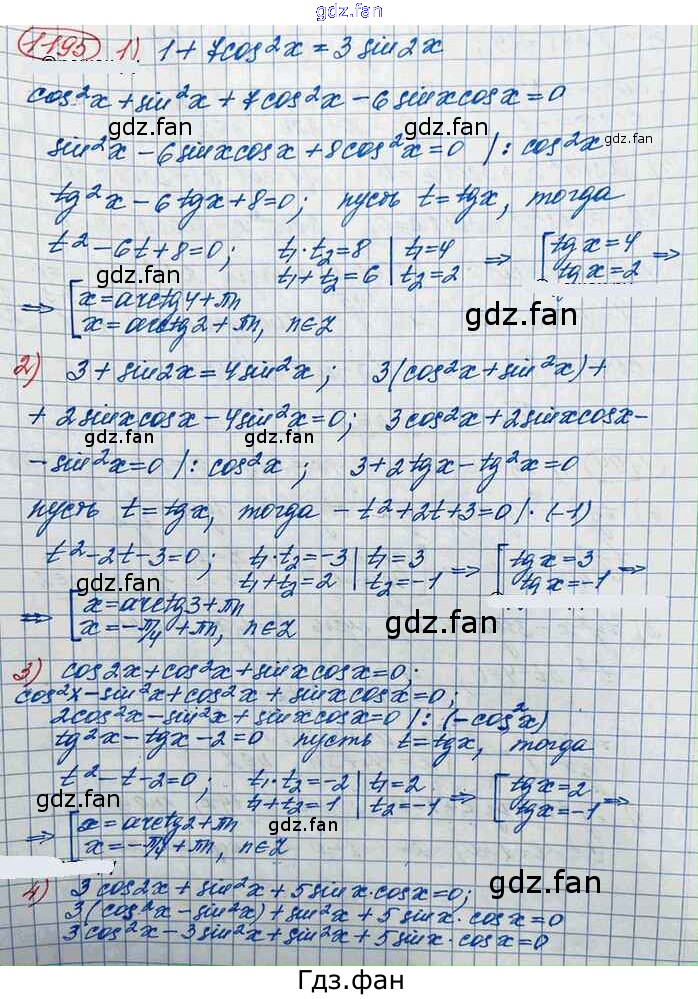 gdz.fan
1195 1) 1 + 7cos²x = 3 sin2x
cos²x + sin²x + 7cos²x - 6sinxcosx = 0
gdz.fan gdz.fan
sin²x - 6sinxcosx + 8cos²x = 0 |: cos²x
gdz.fan
tg²x - 6tgx + 8 = 0; пусть t = tgx, тогда
t² - 6t + 8 = 0; t₁·t₂ = 8 | t₁ = 4 ⇒ [ tgx = 4 ⇒
t₁ + t₂ = 6 | t₂ = 2 [ tgx = 2
gdz.fan
⇒ [ x = arctg4 + πn
[ x = arctg2 + πn, n∈Z
gdz.fan
2) 3 + sin2x = 4sin²x; 3(cos²x + sin²x) +
+ 2sinxcosx - 4sin²x = 0; 3cos²x + 2sinxcosx -
gdz.fan gdz.fan
- sin²x = 0 |: cos²x; 3 + 2tgx - tg²x = 0
gdz.fan
пусть t = tgx, тогда - t² + 2t + 3 = 0 |· (-1)
t² - 2t - 3 = 0; t₁·t₂ = -3 | t₁ = 3 ⇒ [ tgx = 3 ⇒
t₁ + t₂ = 2 | t₂ = -1 [ tgx = -1
gdz.fan
⇒ [ x = arctg3 + πn
[ x = -π/4 + πn, n∈Z
gdz.fan
3) cos2x + cos²x + sinxcosx = 0;
cos²x - sin²x + cos²x + sinxcosx = 0;
2cos²x - sin²x + sinxcosx = 0 |: (-cos²x)
tg²x - tgx - 2 = 0 пусть t = tgx, тогда
t² - t - 2 = 0; t₁·t₂ = -2 | t₁ = 2 ⇒ [ tgx = 2 ⇒
t₁ + t₂ = 1 | t₂ = -1 [ tgx = -1
gdz.fan gdz.fan
⇒ [ x = arctg2 + πn
[ x = -π/4 + πn, n∈Z
gdz.fan
gdz.fan
4) 3cos2x + sin²x + 5sinx·cosx = 0;
3(cos²x - sin²x) + sin²x + 5sinx·cosx = 0
3cos²x - 3sin²x + sin²x + 5sinx·cosx = 0
Гдз.фан